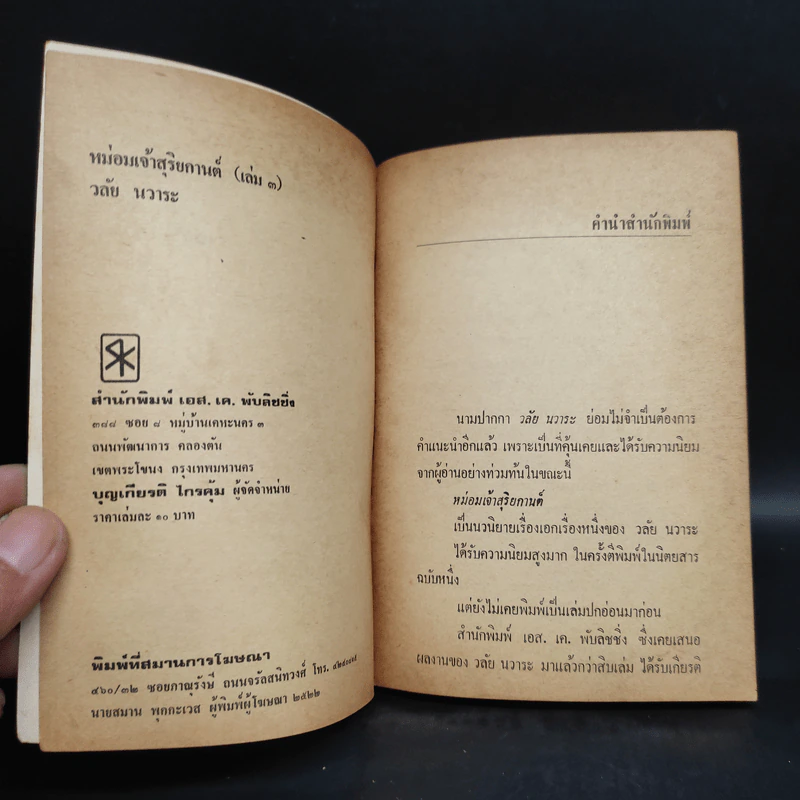 หม่อมเจ้าสุริยกานต์ (เล่ม ๓)
วลัย นวาระ
สำนักพิมพ์ เอส. เค. พับลิชชิ่ง
๓๘๘ ซอย ๘ หมู่บ้านเคหะนคร ๓
ถนนพัฒนาการ คลองตัน
เขตพระโขนง กรุงเทพมหานคร
บุญเกียรติ ไกรคุ้ม ผู้จัดจำหน่าย
ราคาเล่มละ ๑๐ บาท
พิมพ์ที่สมานการโฆษณา
๔๖๐/๓๒ ซอยภาณุรังษี ถนนจรัลสนิทวงศ์ โทร.
นายสมาน พุกกะเวส ผู้พิมพ์ผู้โฆษณา ๒๕๒๒
คำนำสำนักพิมพ์
นามปากกา วลัย นวาระ ย่อมไม่จำเป็นต้องการ
คำแนะนำอีกแล้ว เพราะเป็นที่คุ้นเคยและได้รับความนิยม
จากผู้อ่านอย่างท่วมท้นในขณะนี้
หม่อมเจ้าสุริยกานต์
เป็นนวนิยายเรื่องเอกเรื่องหนึ่งของ วลัย นวาระ
ได้รับความนิยมสูงมาก ในครั้งตีพิมพ์ในนิตยสาร
ฉบับหนึ่ง
แต่ยังไม่เคยพิมพ์เป็นเล่มปกอ่อนมาก่อน
สำนักพิมพ์ เอส. เค. พับลิชชิ่ง ซึ่งเคยเสนอ
ผลงานของ วลัย นวาระ มาแล้วกว่าสิบเล่ม ได้รับเกียรติ